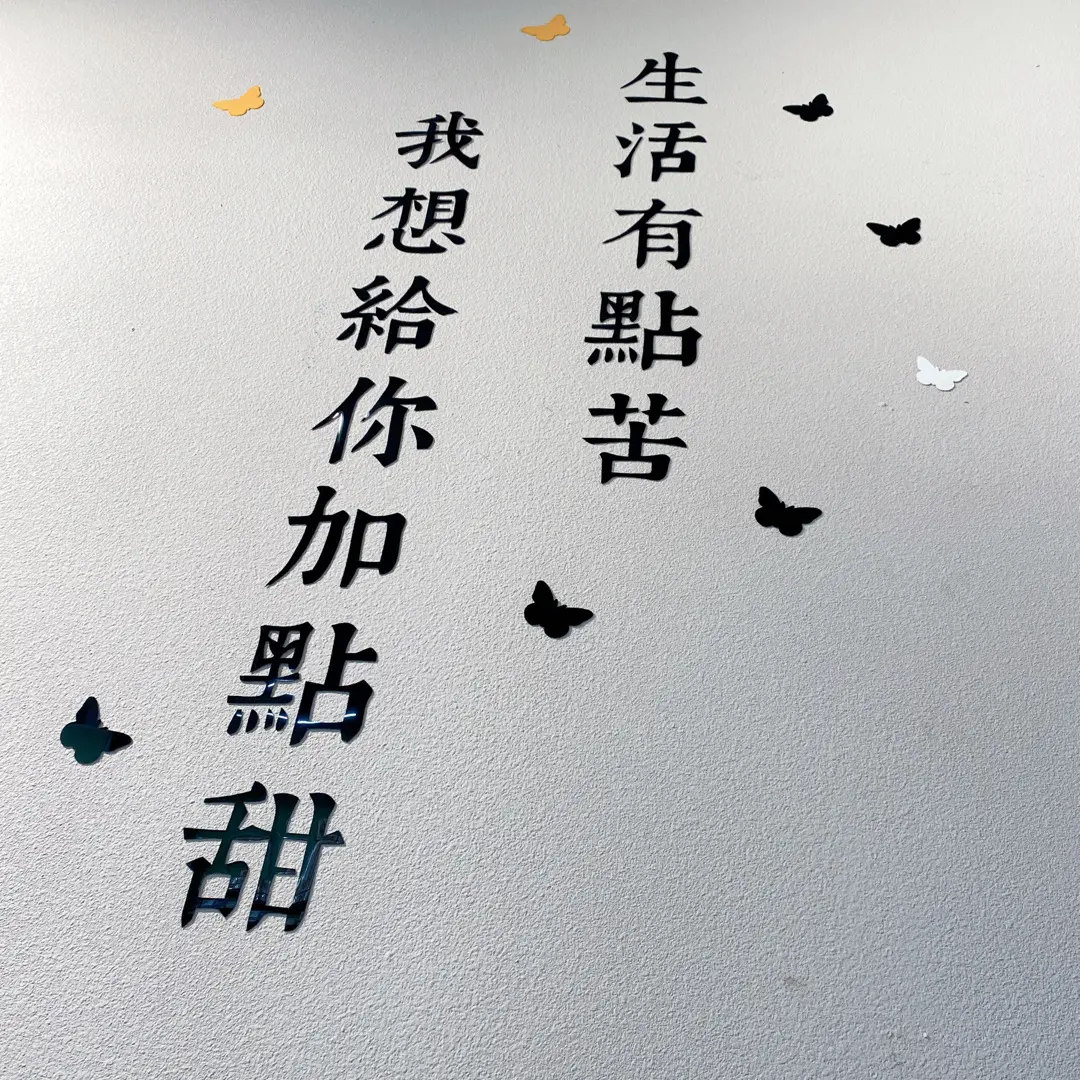 生活有點苦
我想給你加點甜